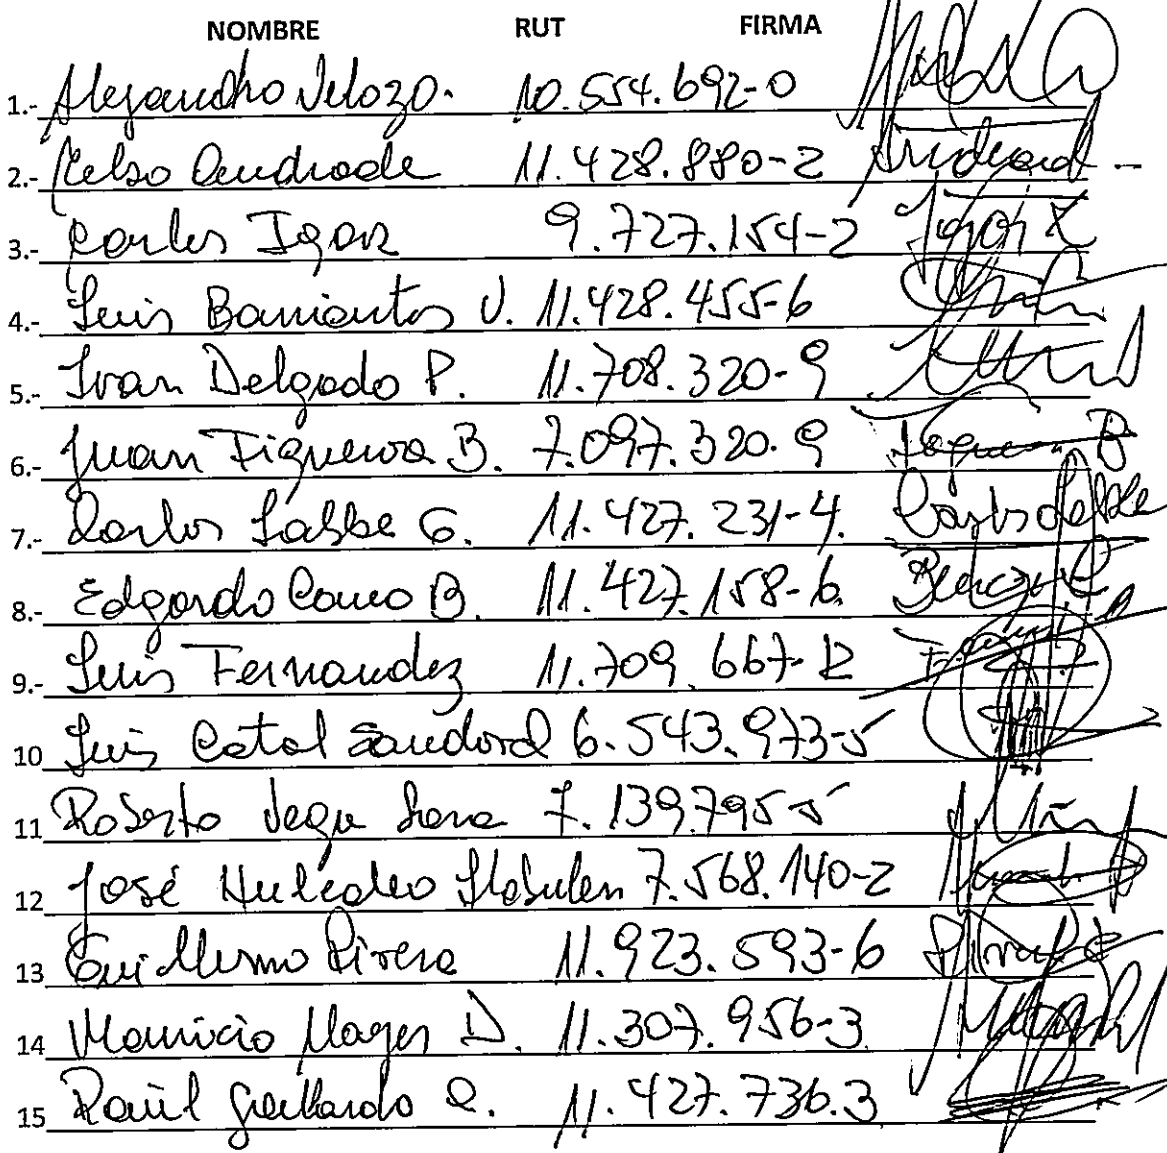 NOMBRE RUT FIRMA
1.- Alejandro Velozo. 10.554.692-0
2.- Celso Andrade 11.428.880-2 Andrade
3.- Carlos Igor 9.727.154-2 Igor
4.- Luis Barrientos V. 11.428.455-6
5.- Ivan Delgado P. 11.708.320-9
6.- Juan Figueroa B. 7.097.320-9
7.- Carlos Labbe G. 11.427.231-4. Carlos Labbe
8.- Edgardo B. 11.427.158-6
9.- Luis Fernandez 11.709.667-K
10 Luis Catal Sandoval 6.543.973-5
11 Roberto Vega 7.139.795-5
12 José 7.568.140-2
13 Guillermo Rivera 11.923.593-6
14 Mauricio D. 11.307.956-3
15 Raúl Gallardo 11.427.736.3